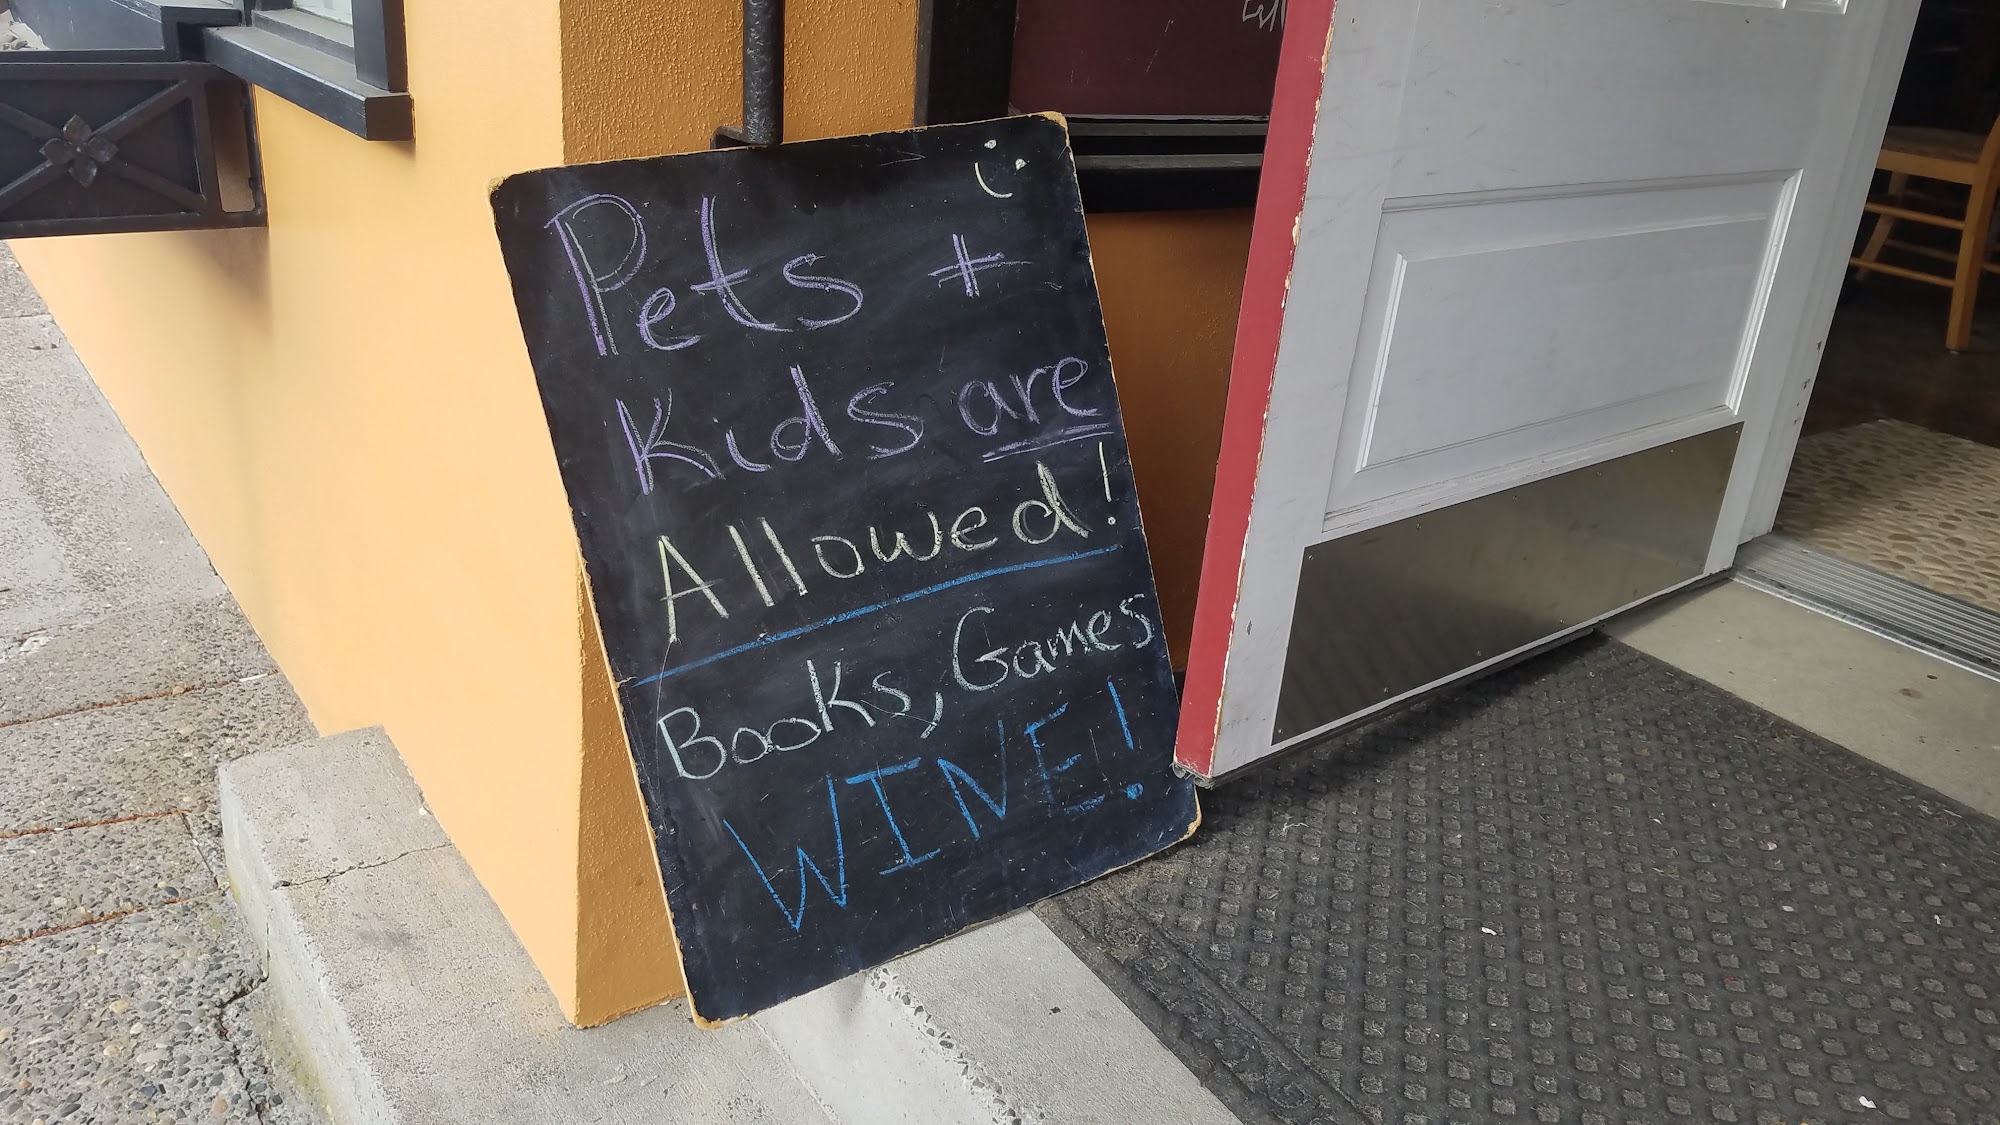 Pets +
Kids are
Allowed!
Books, Games
WINE!